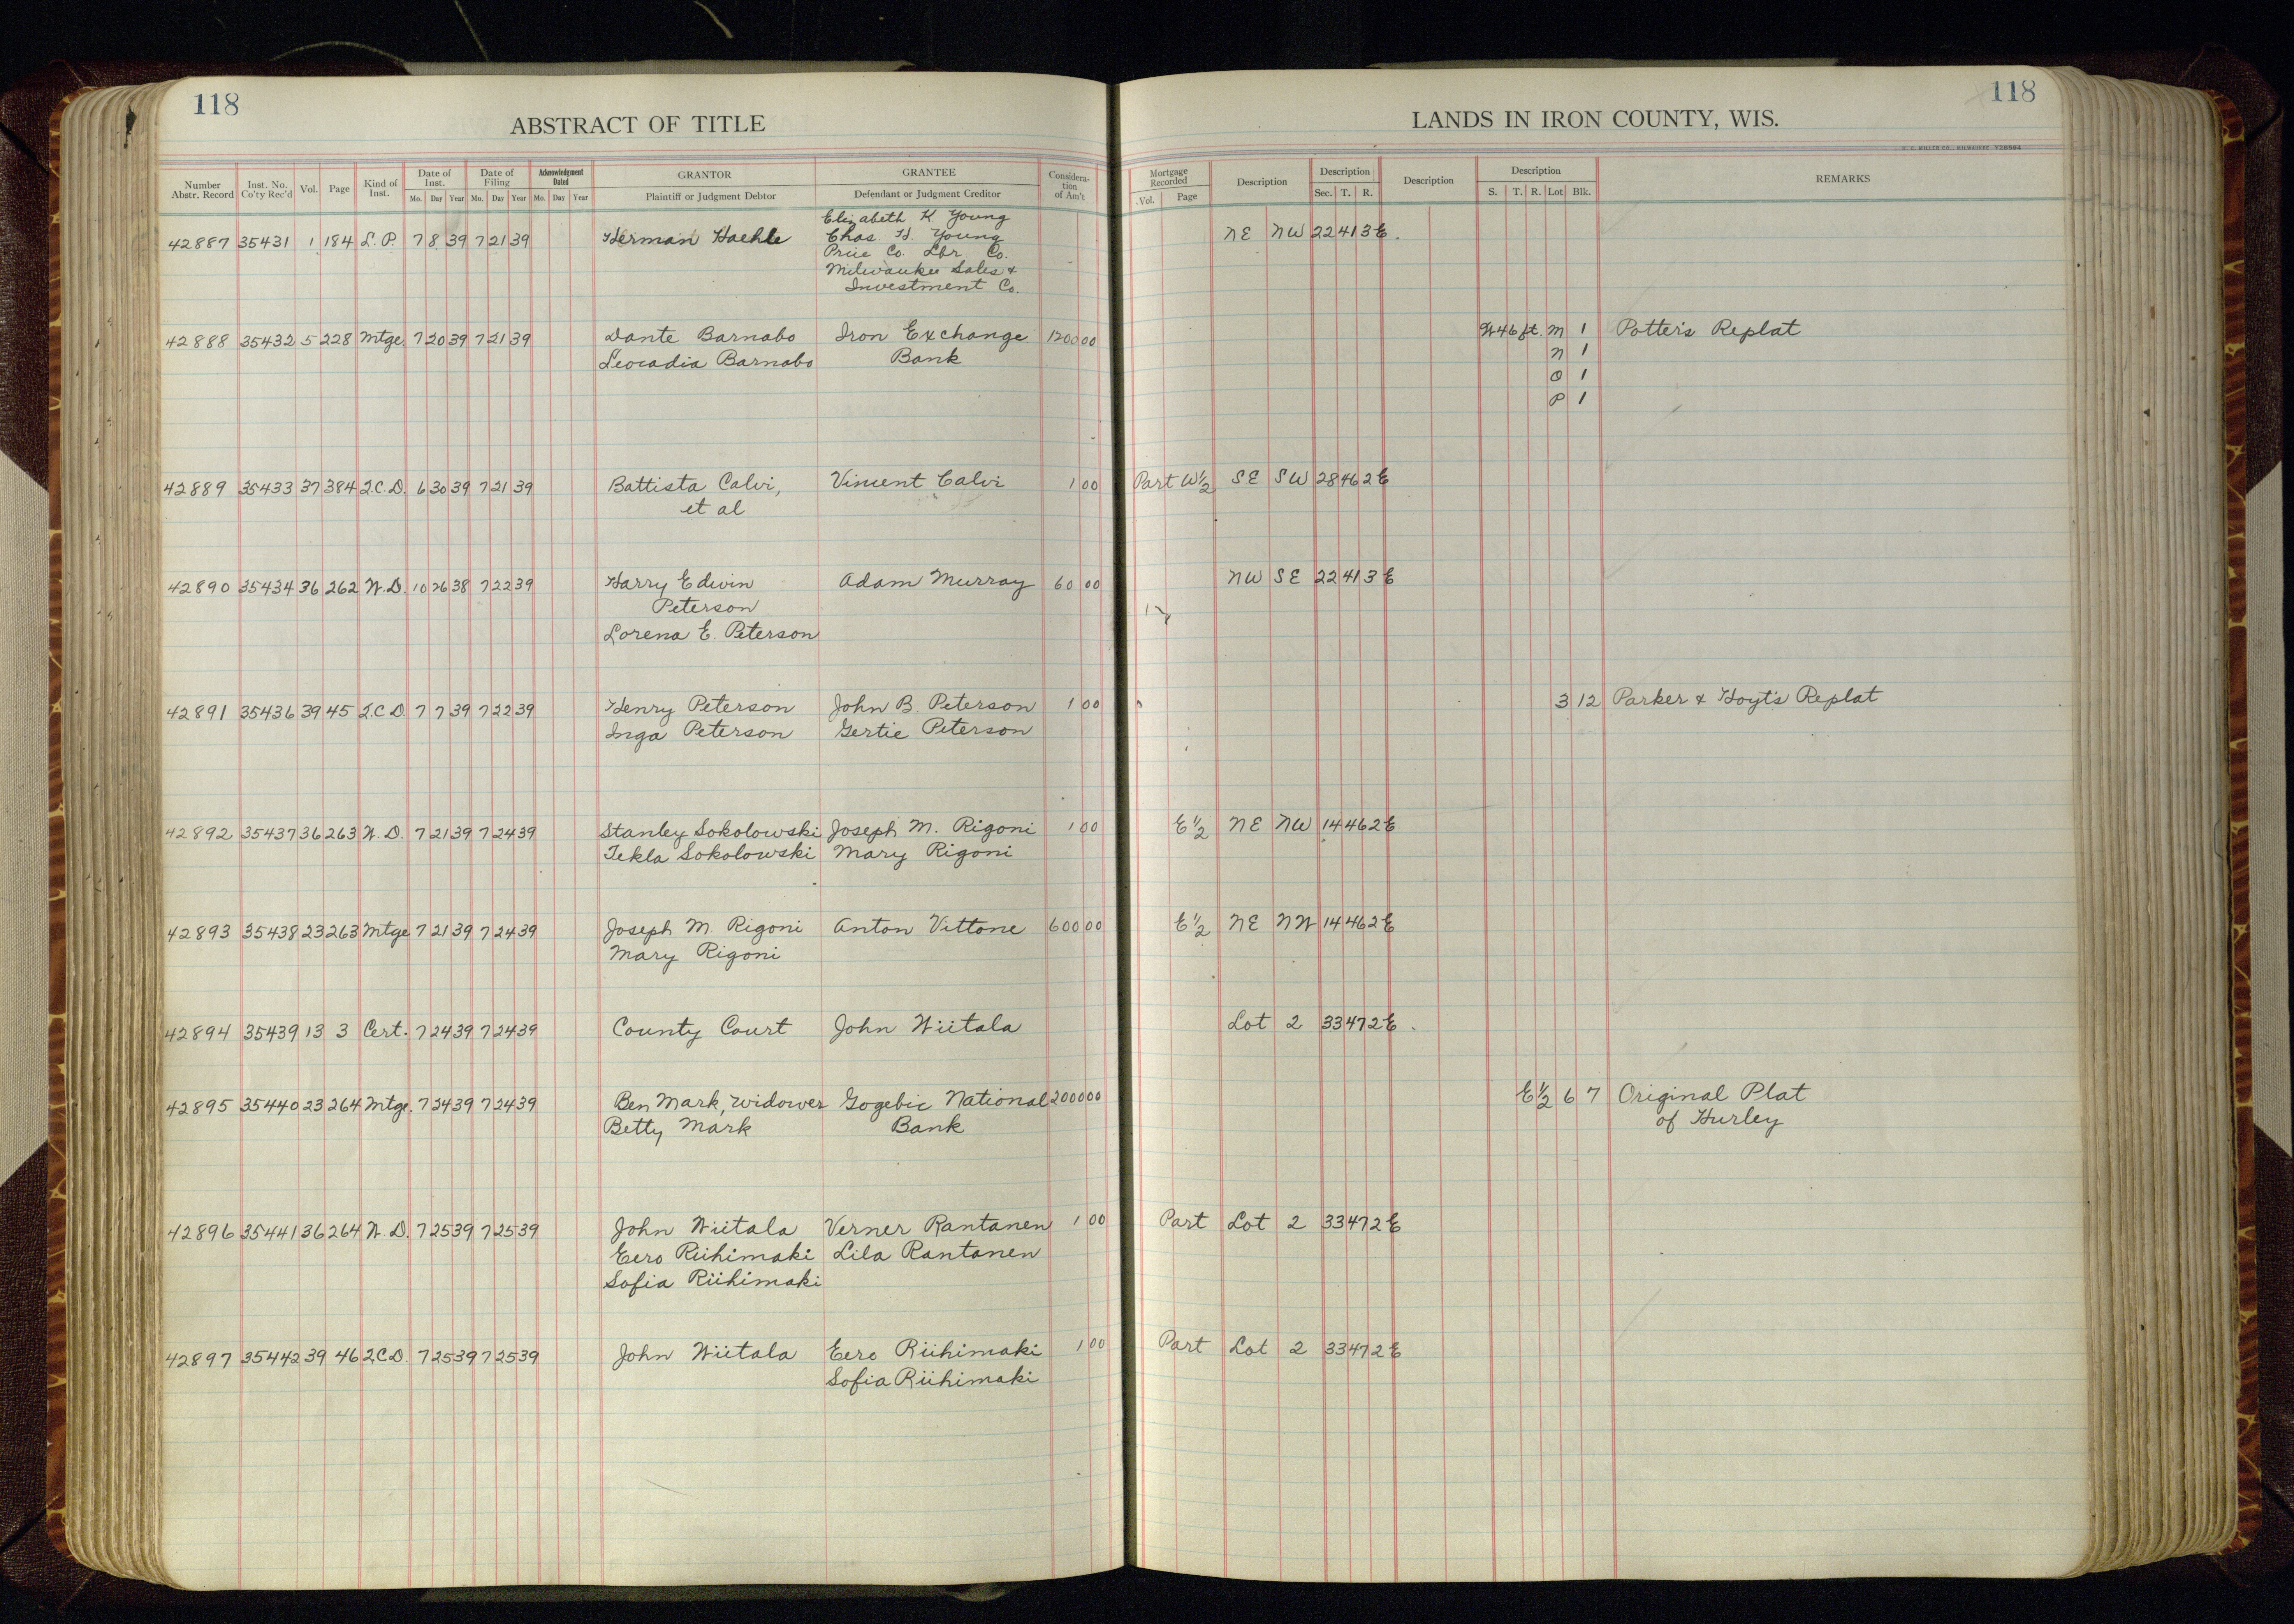 118
ABSTRACT OF TITLE
Number Abstr. Record Inst. No. Co'ty Rec'd Vol. Page Kind of Inst. Date of Inst. Mo. Day Year Date of Filing Mo. Day Year Acknowledgment Dated Mo. Day Year GRANTOR Plaintiff or Judgment Debtor GRANTEE Defendant or Judgment Creditor Considera-tion of Am't
Elizabeth K Young
42887 35431 1 184 L.P. 7 8 39 7 21 39 Herman Haehle Chas H. Young
Price Co. Lbr Co.
Milwaukee Sales &
Investment Co.
42888 35432 5 228 Mtge. 7 20 39 7 21 39 Dante Barnabo Iron Exchange 1200 00
Leocadia Barnabo Bank
42889 35433 37 384 2.C.D. 6 30 39 7 21 39 Battista Calvi, Vincent Calvi 1 00
et al
42890 35434 36 262 W.D. 10 26 38 7 22 39 Harry Edwin Adam Murray 60 00
Peterson
Lorena E. Peterson
42891 35436 39 45 2.C.D. 7 7 39 7 22 39 Henry Peterson John B. Peterson 1 00
Inga Peterson Gertie Peterson
42892 35437 36 263 W.D. 7 21 39 7 24 39 Stanley Sokolowski Joseph M. Rigoni 1 00
Tekla Sokolowski Mary Rigoni
42893 35438 23 263 Mtge 7 21 39 7 24 39 Joseph M. Rigoni Anton Vittone 600 00
Mary Rigoni
42894 35439 13 3 Cert. 7 24 39 7 24 39 County Court John Wiitala
42895 35440 23 264 Mtge. 7 24 39 7 24 39 Ben Mark, widower Gogebic National 2000 00
Betty Mark Bank
42896 35441 36 264 W.D. 7 25 39 7 25 39 John Wiitala Verner Rantanen 1 00
Eero Riihimaki Lila Rantanen
Sofia Riihimaki
42897 35442 39 46 2.C.D. 7 25 39 7 25 39 John Wiitala Eero Riihimaki 1 00
Sofia Riihimaki
118
LANDS IN IRON COUNTY, WIS.
H. C. MILLER CO., MILWAUKEE
Mortgage Recorded Vol. Page Description Description Sec. T. R. Description Description S. T. R. Lot Blk. REMARKS
NE NW 22 41 3E.
W46 ft. M 1 Potter's Replat
N 1
O 1
P 1
Part W½ SE SW 28 46 2E
NW SE 22 41 3 E
3 12 Parker & Hoyt's Replat
E½ NE NW 14 46 2E
E½ NE NW 14 46 2E
Lot 2 33 47 2E.
E½ 6 7 Original Plat
of Hurley
Part Lot 2 33 47 2E
Part Lot 2 33 47 2E